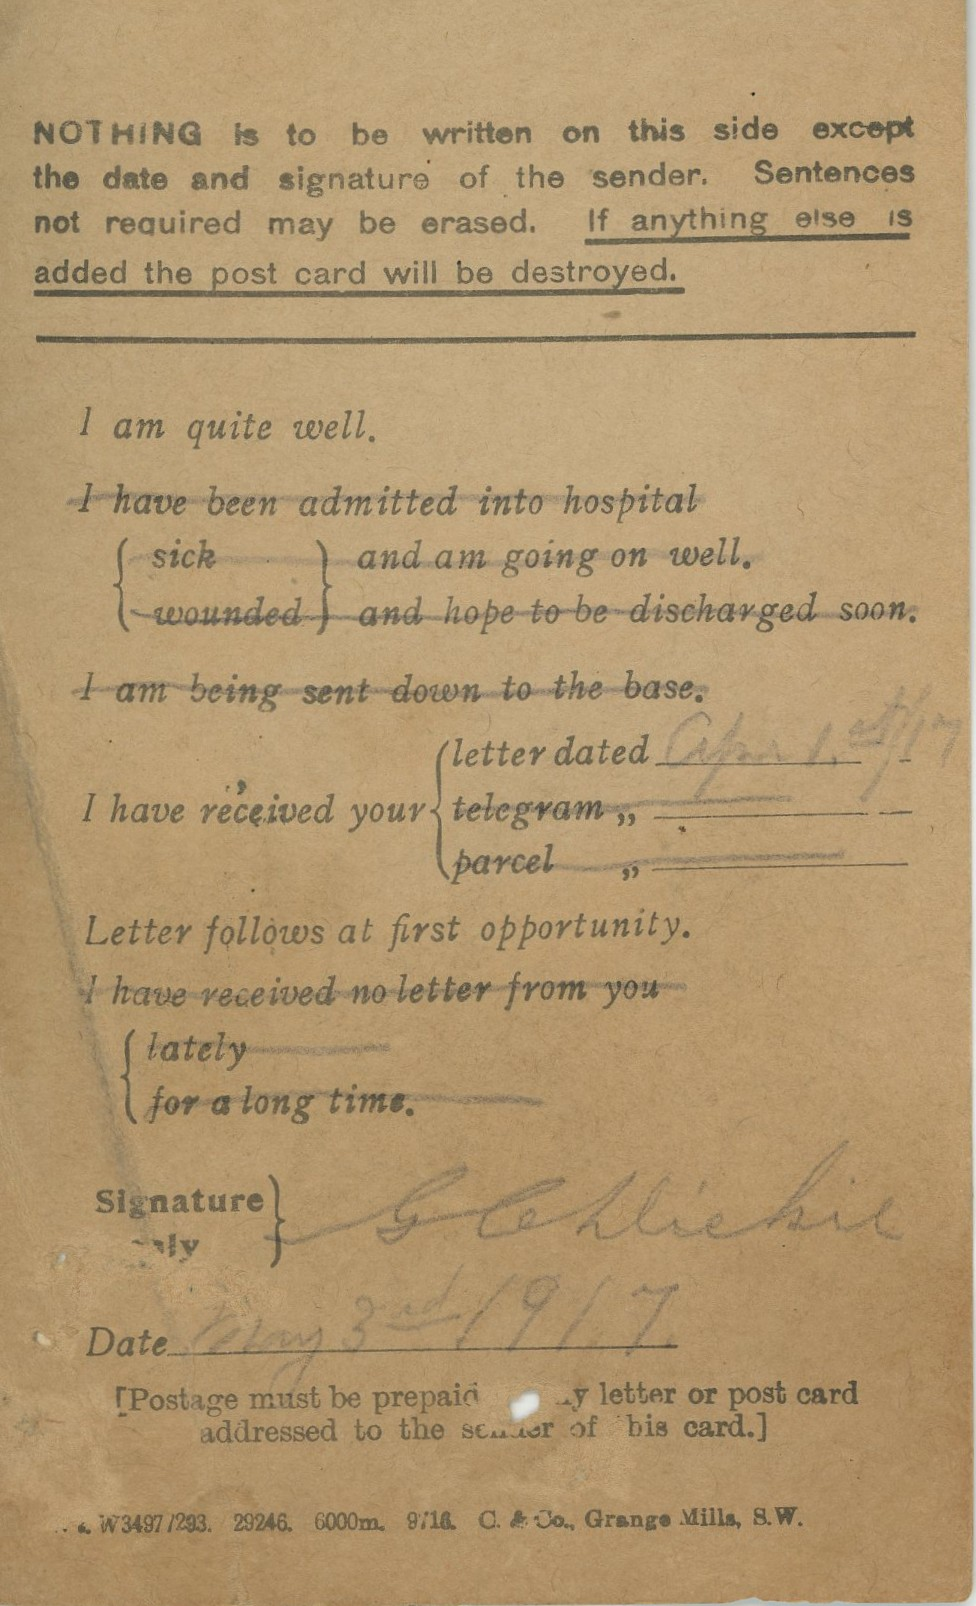 NOTHING is to be written on this side except
the date and signature of the sender. Sentences
not required may be erased. If anything else is
added the post card will be destroyed.
I am quite well.
I have been admitted into hospital
{ sick } and am going on well.
{ wounded } and hope to be discharged soon.
I am being sent down to the base.
letter dated Apr 1st/17
I have received your { telegram „
parcel „
Letter follows at first opportunity.
I have received no letter from you
{ lately
for a long time.
Signature }
May 3rd 1917.
Date
[Postage must be prepaid letter or post card
addressed to the sender of his card.]
W3497/293. 29246. 6000m. 9/16. C. & Co., Grange Mills, S.W.